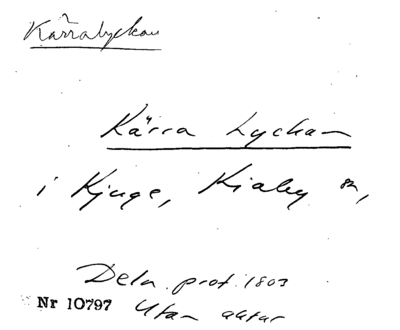 Kärralyckan
Kärra Lyckan
i Kjuge, Kiaby sn,
Deln. prot. 1803
Nr 10797 Utan aktar